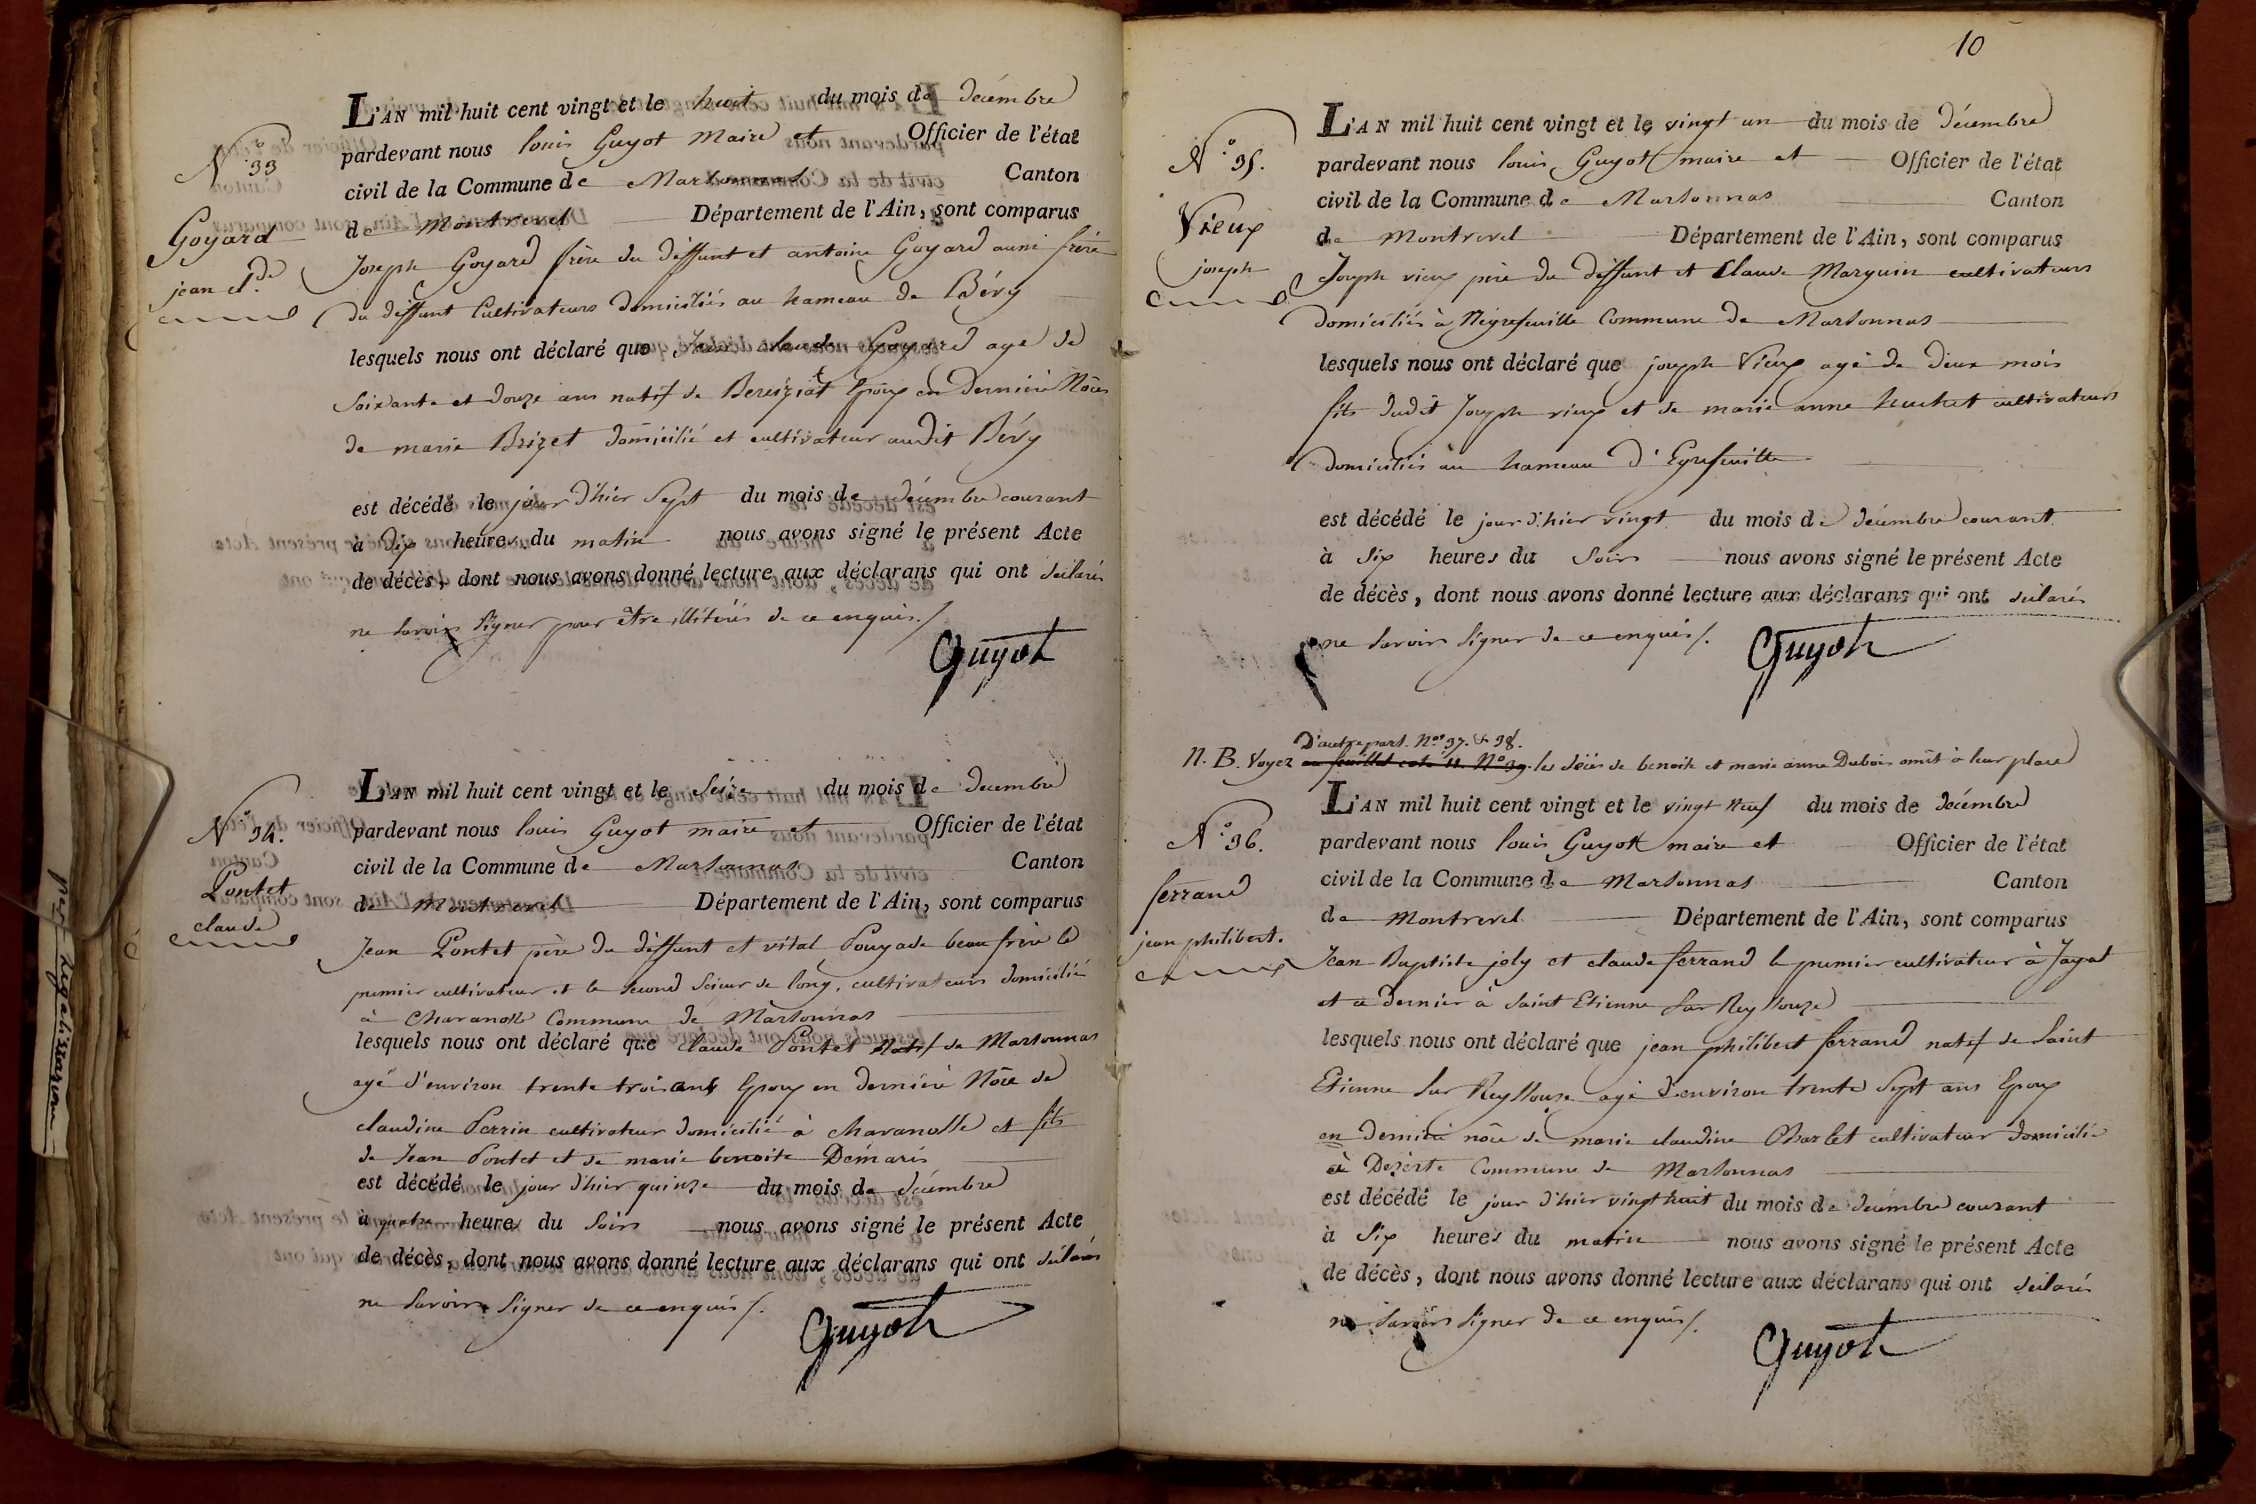 N.° 33
Goyard
jean cl.de
L'AN mil huit cent vingt et le huit du mois de décembre
pardevant nous louis Guyot Maire et Officier de l'état
civil de la Commune de Marsonnas Canton
de Montrevel Département de l'Ain, sont comparus
Joseph Goyard frère du deffunt et antoine Goyard aussi frère
du deffunt Cultivateurs domiciliés au hameau de Bévy
lesquels nous ont déclaré que Jean claude Goyard agé de
Soixante et douze ans natif de Bereiziat Epoux en derniere Nôces
de marie Brizet domicilié et cultivateur audit Bévy
est décédé le jour d'hier Sept du mois de décembre courant
à dix heures du matin nous avons signé le présent Acte
de décès, dont nous avons donné lecture aux déclarans qui ont déclarés
ne savoir signer pour être illitérés de ce enquis /.
Guyot
N.° 34.
Pontet
claude
L'AN mil huit cent vingt et le Seize du mois de decembre
pardevant nous louis Guyot maire et Officier de l'état
civil de la Commune de Marsonnas Canton
de Montrevel Département de l'Ain, sont comparus
Jean Pontet père du deffunt et vital Pouyade beau frère le
premier cultivateur et le second Scieur de long, cultivateurs domicilié
à Charanolle Commune de Marsonnas
lesquels nous ont déclaré que claude Pontet Natif de Marsonnas
agé d'environ trente trois ans Epoux en derniere Nôce de
claudine Perrin cultivateur domicilié à charanolle et fils
de Jean Pontet et de marie benoite Demaris
est décédé le jour d'hier quinze du mois de décembre
à quatre heures du Soir nous avons signé le présent Acte
de décès, dont nous avons donné lecture aux déclarans qui ont déclarés
ne savoir signer de ce enquis /.
Guyot
10
N.° 35.
Vieux
joseph
L'AN mil huit cent vingt et le vingt un du mois de décembre
pardevant nous louis Guyot maire et Officier de l'état
civil de la Commune de Marsonnas Canton
de Montrevel Département de l'Ain, sont comparus
Joseph vieux père du deffunt et Claude Marguin cultivateurs
domiciliés à Négrefeuille Commune de Marsonnas
lesquels nous ont déclaré que joseph Vieux agé de deux mois
fils dudit Joseph vieux et de marie anne huchet cultivateurs
domiciliés au hameau d'Egrefeuille
est décédé le jour d'hier vingt du mois de décembre courant
à Six heures du Soir nous avons signé le présent Acte
de décès, dont nous avons donné lecture aux déclarans qui ont déclarés
ne savoir signer de ce enquis /.
Guyot
D'autre part. Nos 37. & 38.
N. B. Voyez au feuillet coté 11. N° 39. les décès de benoite et marie anne Dubois omit à leur place
N.° 36.
ferrand
jean philibert.
L'AN mil huit cent vingt et le vingt Neuf du mois de décembre
pardevant nous louis Guyot maire et Officier de l'état
civil de la Commune de Marsonnas Canton
de Montrevel Département de l'Ain, sont comparus
Jean Baptiste joly et claude ferrand le premier cultivateur à Jayat
et ce dernier à Saint Etienne Sur Reyssouze
lesquels nous ont déclaré que jean philibert ferrand natif de Saint
Etienne Sur Reyssouze agé d'environ trente Sept ans Epoux
en derniere nôce de marie claudine Charlet cultivateur domicilié
à Dezerte Commune de Marsonnas
est décédé le jour d'hier vingt huit du mois de décembre courant
à Six heures du matin nous avons signé le présent Acte
de décès, dont nous avons donné lecture aux déclarans qui ont déclarés
ne savoir signer de ce enquis /.
Guyot